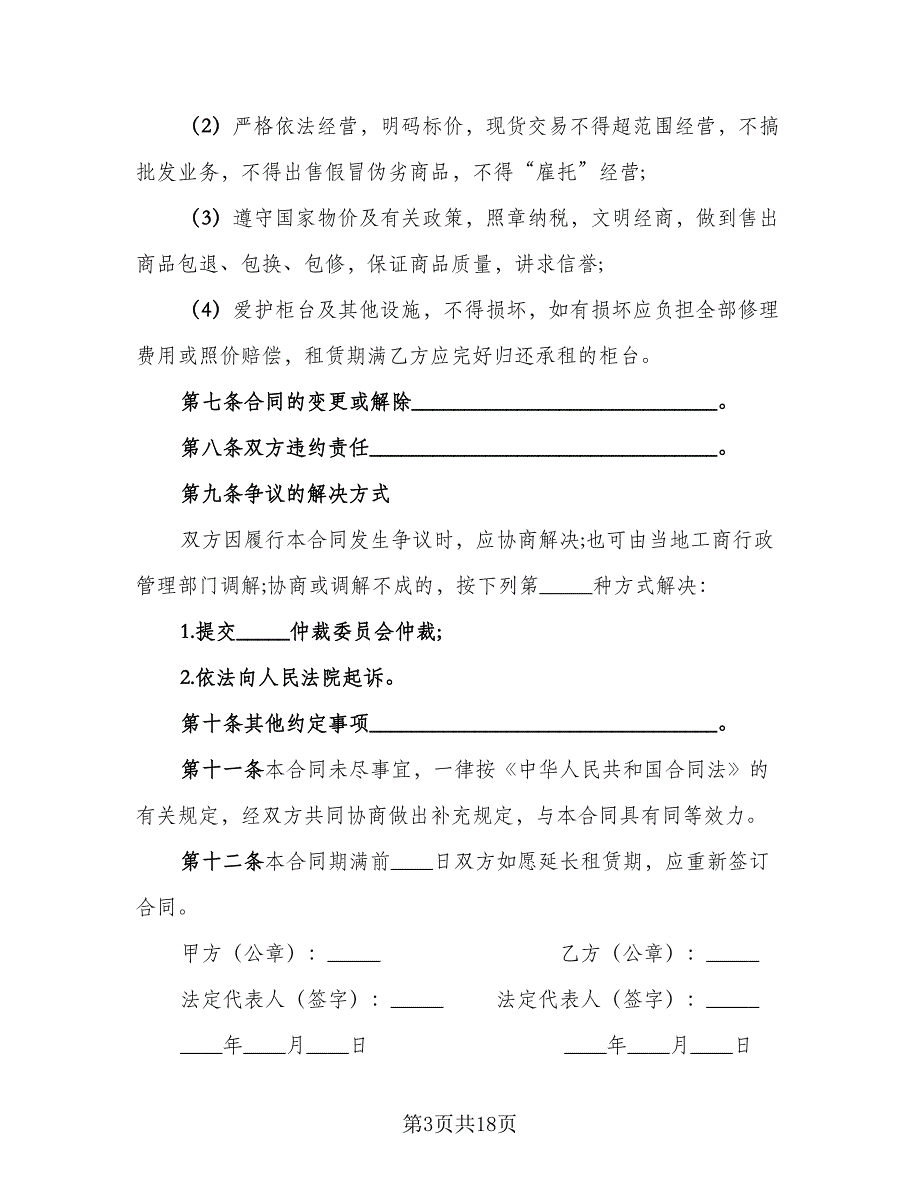 （2）严格依法经营，明码标价，现货交易不得超范围经营，不搞
批发业务，不得出售假冒伪劣商品，不得“雇托”经营;
（3）遵守国家物价及有关政策，照章纳税，文明经商，做到售出
商品包退、包换、包修，保证商品质量，讲求信誉;
（4）爱护柜台及其他设施，不得损坏，如有损坏应负担全部修理
费用或照价赔偿，租赁期满乙方应完好归还承租的柜台。
第七条合同的变更或解除_____________________________。
第八条双方违约责任_________________________________。
第九条争议的解决方式
双方因履行本合同发生争议时，应协商解决;也可由当地工商行政
管理部门调解;协商或调解不成的，按下列第_____种方式解决：
1.提交_____仲裁委员会仲裁;
2.依法向人民法院起诉。
第十条其他约定事项_________________________________。
第十一条本合同未尽事宜，一律按《中华人民共和国合同法》的
有关规定，经双方共同协商做出补充规定，与本合同具有同等效力。
第十二条本合同期满前____日双方如愿延长租赁期，应重新签订
合同。
甲方（公章）：_____ 乙方（公章）：_____
法定代表人（签字）：_____ 法定代表人（签字）：_____
____年____月____日 ____年____月____日
第3页共18页